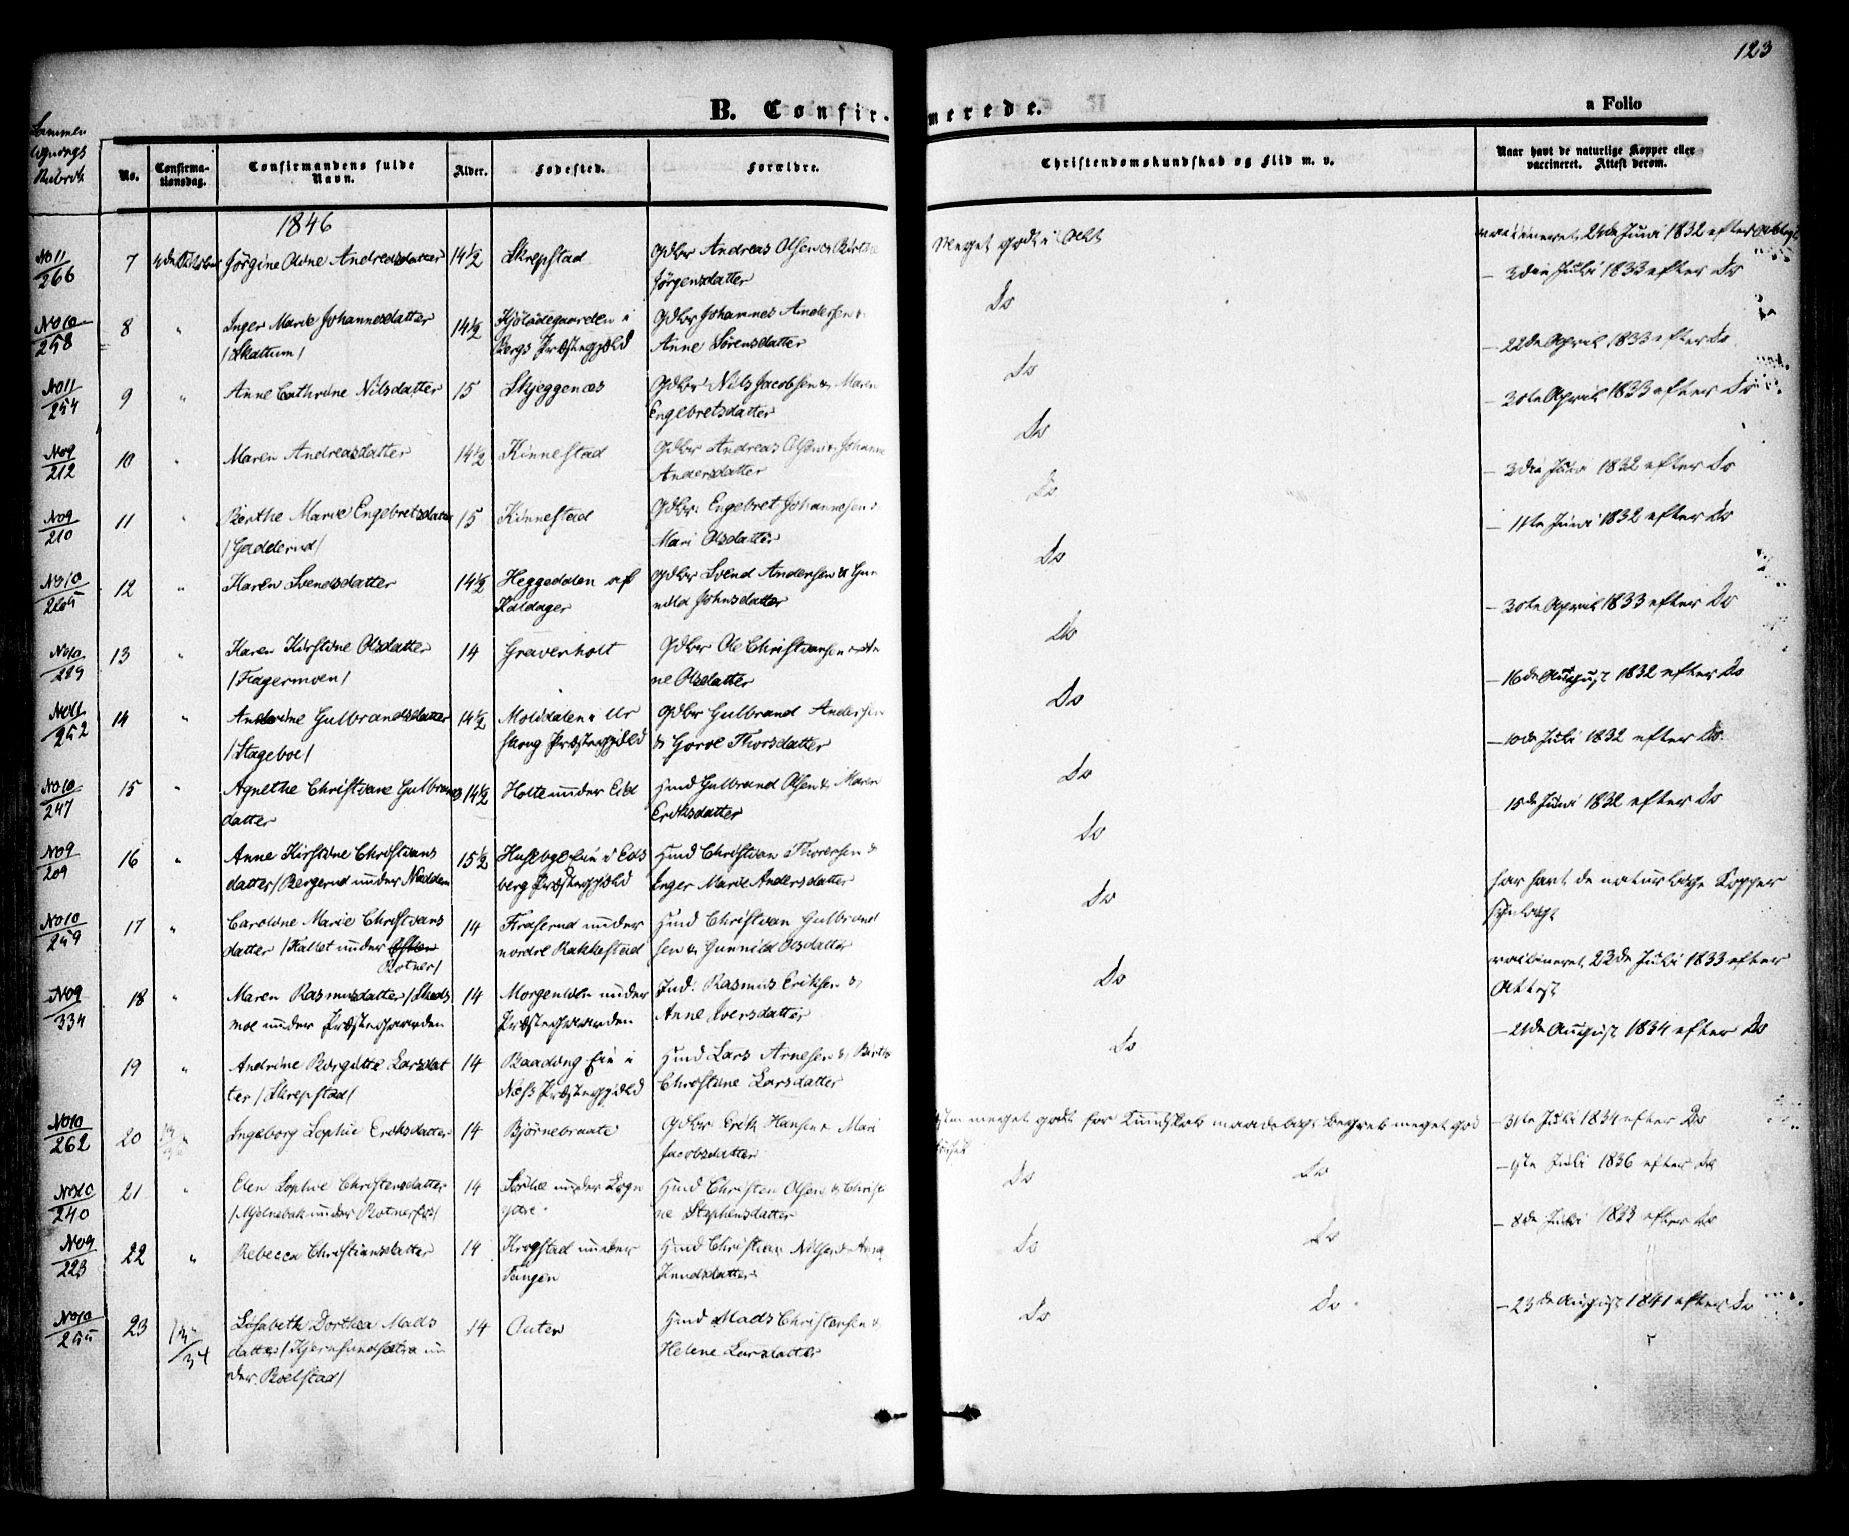 123
B. Confir-
merede.
a Folio
Sammen
lignings
Rubrik
No.
Confirma-
tionsdag.
Confirmandens fulde
Navn.
Alder.
Fødested.
Forældre.
Christendomskundskab og Flid m. v.
Naar havt de naturlige Kopper eller
vaccineret. Attest derom.
1846
No 11
266
7
Jørgine Oline Andreasdatter
14½
Skrepstad
Gdbr Andreas Olsen & Birthe
Jørgensdatter
Meget godt i Alt
vaccineret 24de Juni 1832 efter Attest
No 10
258
8
"
Inger Marie Johannesdatter
/Skattum/
14½
i
Bergs Præstegjeld
Gdbr Johannes Andersen &
Anne Sørensdatter
Do
– 3die Juli 1833 efter Do
No 11
254
9
"
Anne Cathrine Nilsdatter
15
Skjeggenæs
Gdbr Nils Jacobsen & Maren
Engebretsdatter
Do
– 22de April 1833 efter Do
No 9
212
10
"
Maren Andreasdatter
14½
Kinnestad
Gdbr Andreas Olsen & Johanne
Andersdatter
Do
– 30te April 1833 efter Do
No 9
210
11
"
Berthe Marie Engebretsdatter
/Gadderud/
15
Kinnestad
Gdbr Engebret Johannesen &
Mari Olsdatter
Do
– 3die Juli 1832 efter Do
No 10
12
"
Karen Svendsdatter
14½
Heggedalen af
Kaldager
Gdbr Svend Andersen & Gun
nild Johnsdatter
Do
– 11te Juni 1832 efter Do
No 10
13
"
Karen Kirstine Olsdatter
/Fagermoen/
14
Graverholt
Gdbr Ole Christiansen & An
ne Olsdatter
Do
– 30te April 1833 efter Do
No 11
252
14
"
Andrine Gulbrandsdatter
/Stageboe/
14½
Molddalen i Ur
skoug Præstegjeld
Gdbr Gulbrand Andersen
& Goroe Thorsdatter
Do
– 16de August 1832 efter Do
No 10
247
15
"
Agnethe Christiane Gulbrands
datter
14½
Holte under Eid
Huusmd Gulbrand Olsen & Maren
Eriksdatter
Do
– 10de Juli 1832 efter Do
No 9
209
16
"
Anne Kirstine Christians
datter /Bergerud under Nadden
15½
i Eids
berg Præstegjeld
Huusmd Christian Thoresen &
Inger Marie Andersdatter
Do
– 15de Juni 1832 efter Do
No 10
259
17
"
Caroline Marie Christians
datter /Kallet under
Rotner/
14
Fraserud under
nordre Rakkestad
Huusmd Christian Gulbrand
sen & Gunnild Olsdatter
Do
har havt de naturlige Kopper
No 9
334
18
"
Maren Rasmusdatter /Skeds
moe under Præstegaarden
14
Morgentolen under
Præstegaarden
Ind. Rasmus Eriksen &
Anne Iversdatter
Do
vaccineret 22de Juli 1833 efter
Attest
19
"
Andrine Birgitte Larsdat
ter /Skrepstad/
14
i
Næss Præstegjeld
Huusmd Lars Arnesen & Birthe
Christine Larsdatter
Do
– 21de August 1834 efter Do
No 10
262
20
"
Ingeborg Sophie Eriksdatter
14
Bjørnebraate
Gdbr Erik Hansen & Mari
Jacobsdatter
meget godt for Kundskab maadeligt Begreb meget god
– 31te Juli 1834 efter Do
No 10
240
21
"
Elen Sophie Christensdatter
14
under
Huusmd Christen Olsen & Christi
ne Stephensdatter
Do
Do
– 1ste Juli 1836 efter Do
No 9
223
22
"
Rebecca Christiansdatter
14
Krogstad under
Tangen
Huusmd Christian Nilsen & Anne
Knudsdatter
Do
Do
– 8de Juli 1833 efter Do
No 10
255
23
Lisabeth Dorthea Mads
datter /Kjernsundsætra un
der Roelstad/
14
Outen
Huusmd Mads Christensen &
Helene Larsdatter
Do
Do
– 23de August 1841 efter Do